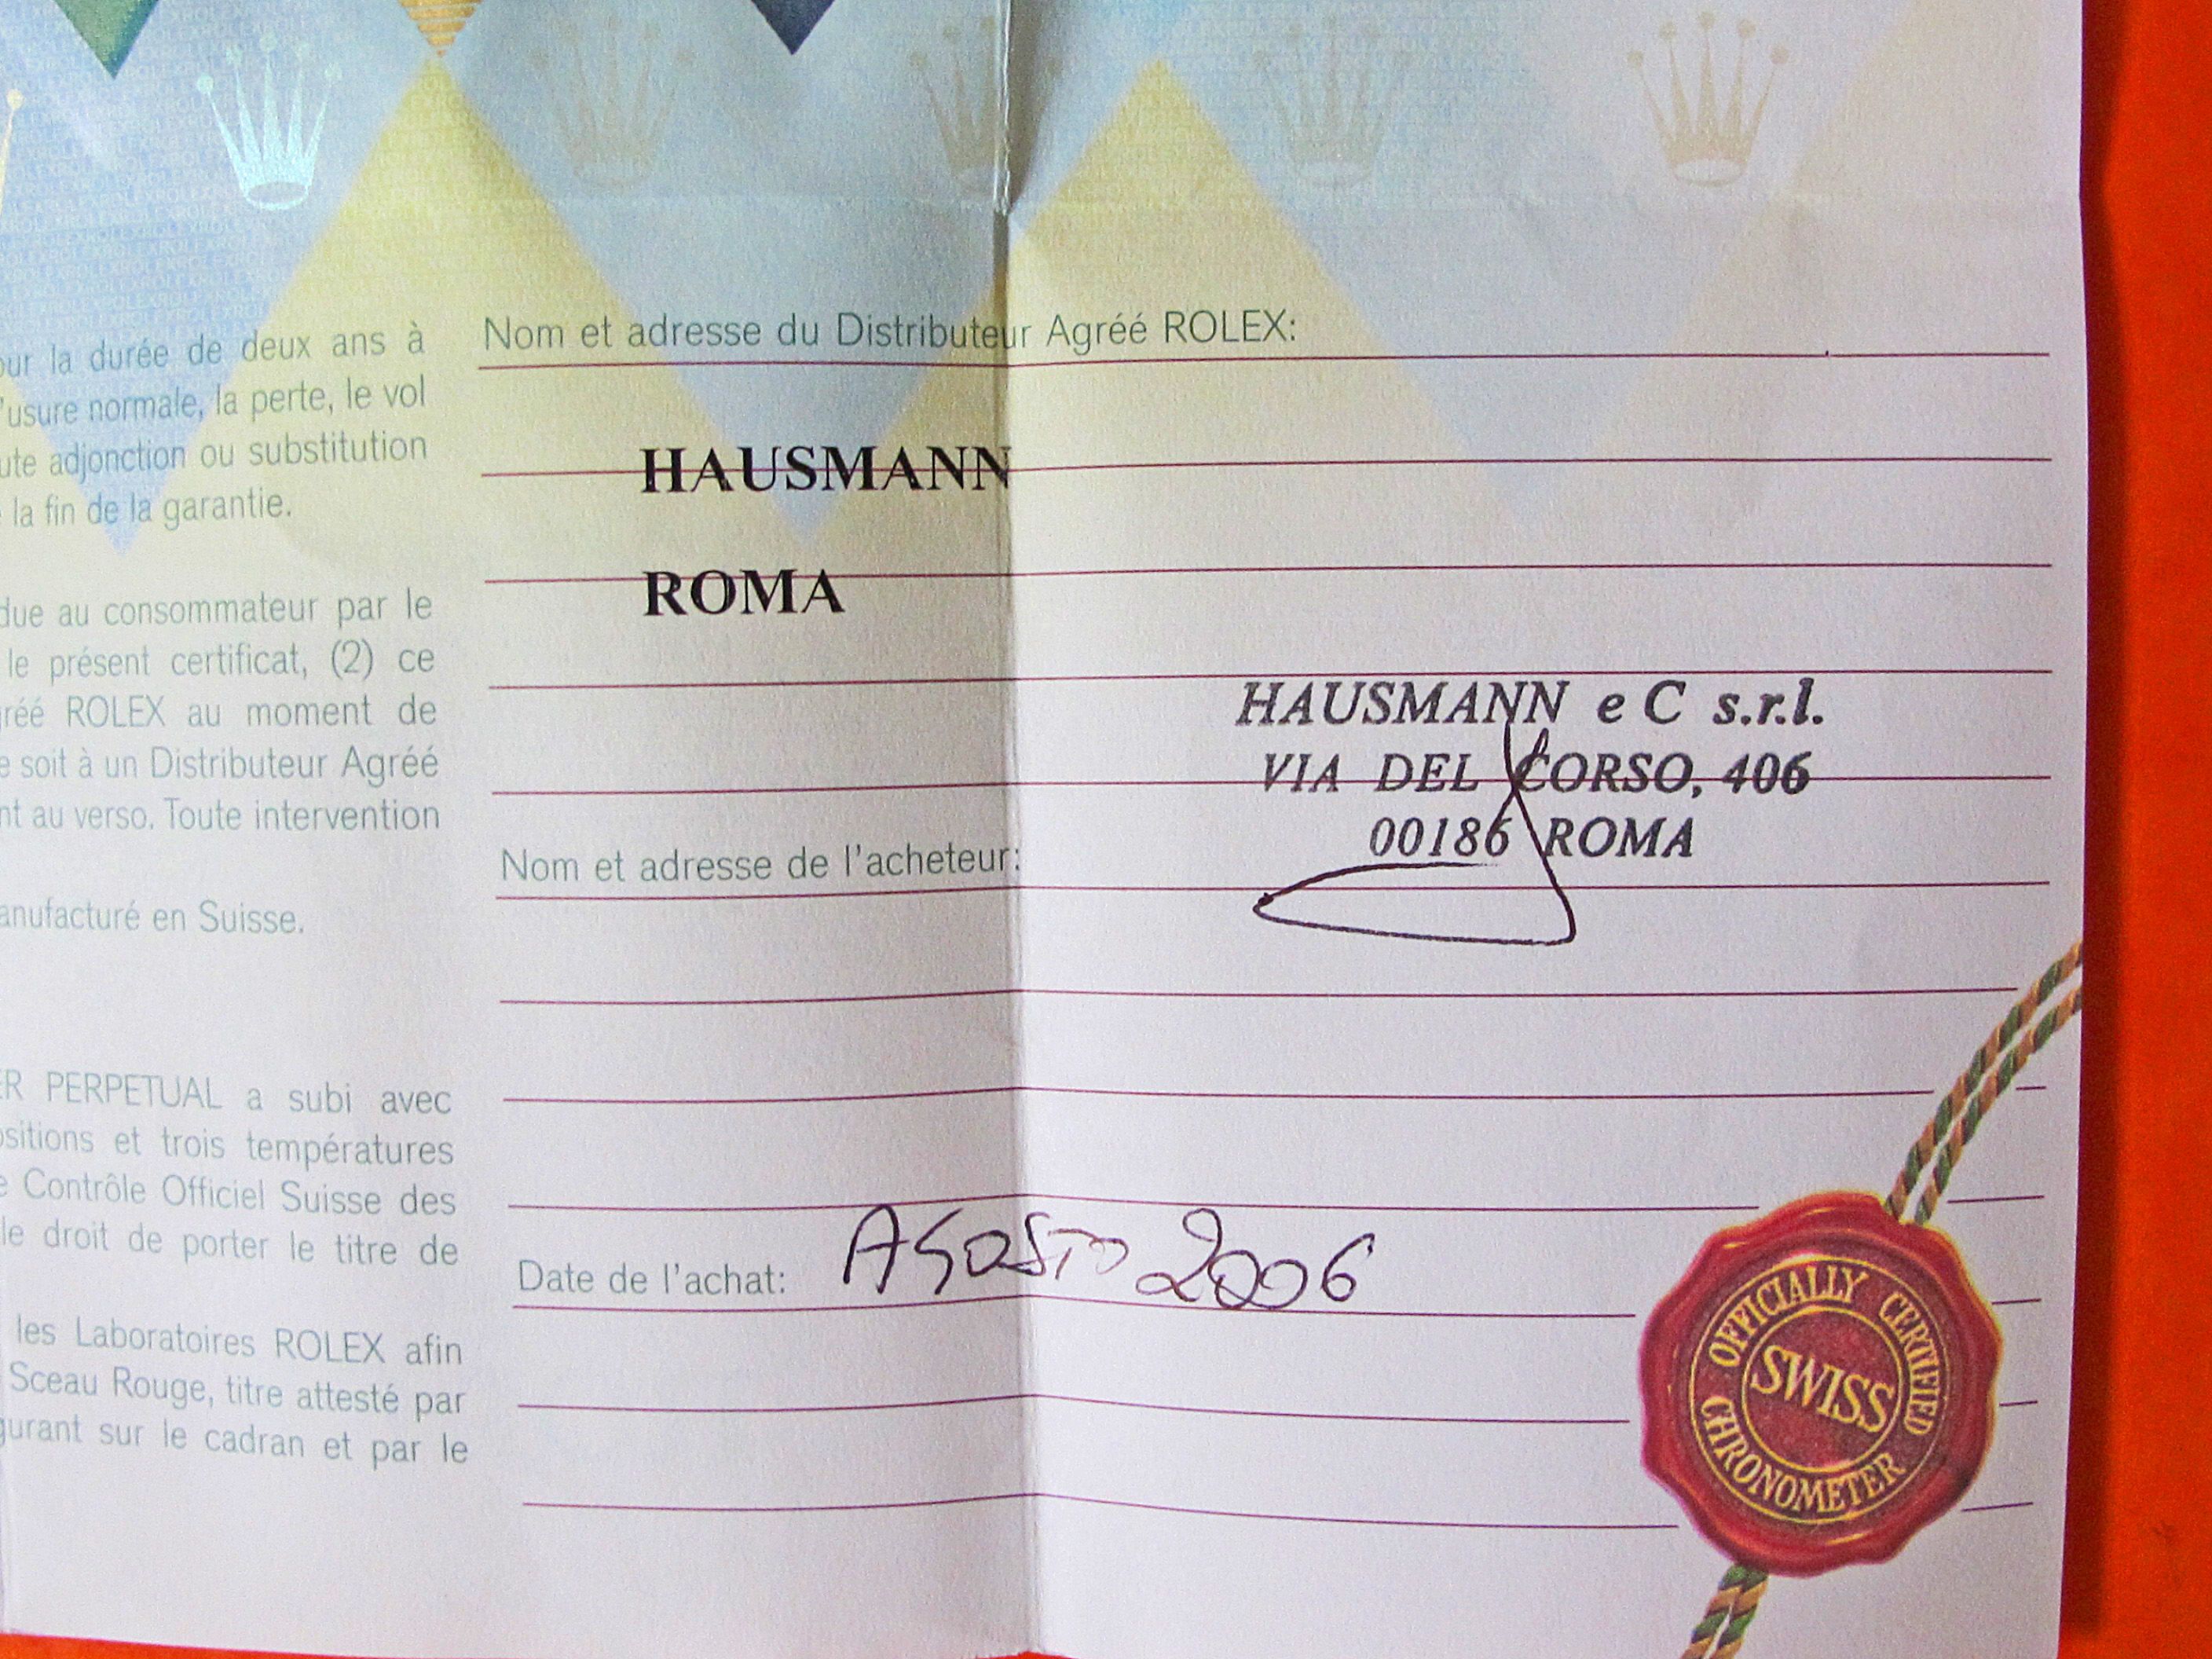 our la durée de deux ans à
l'usure normale, la perte, le vol
ute adjonction ou substitution
la fin de la garantie.
due au consommateur par le
le présent certificat, (2) ce
gréé ROLEX au moment de
e soit à un Distributeur Agréé
nt au verso. Toute intervention
anufacturé en Suisse.
ER PERPETUAL a subi avec
ositions et trois températures
e Contrôle Officiel Suisse des
le droit de porter le titre de
les Laboratoires ROLEX afin
Sceau Rouge, titre attesté par
gurant sur le cadran et par le
Nom et adresse du Distributeur Agréé ROLEX:
HAUSMANN
ROMA
HAUSMANN e C s.r.l.
VIA DEL CORSO, 406
00186 ROMA
Nom et adresse de l'acheteur:
Date de l'achat: AGOSTO 2006
OFFICIALLY CERTIFIED
SWISS
CHRONOMETER